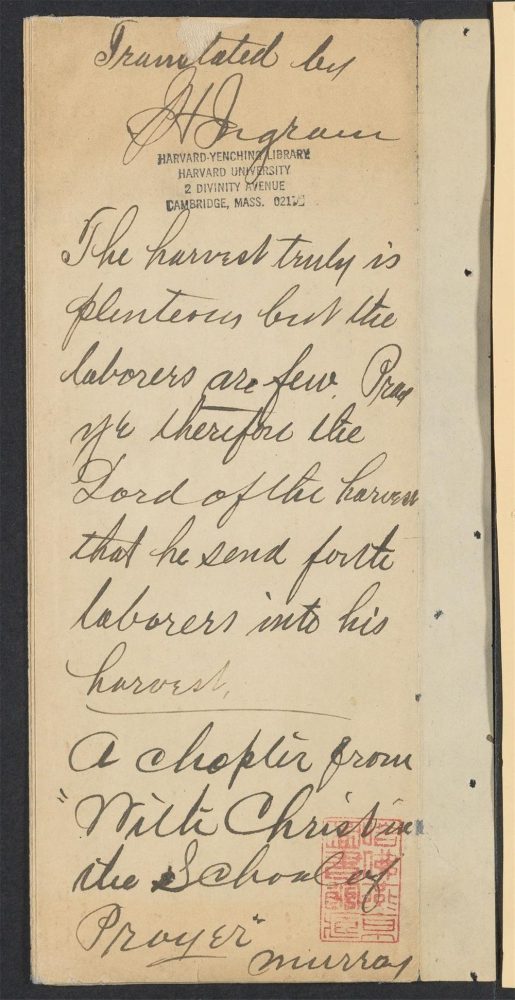 Translated by
JH Ingram
HARVARD-YENCHING LIBRARY
HARVARD UNIVERSITY
2 DIVINITY AVENUE
CAMBRIDGE, MASS.
The harvest truly is
plenteous but the
laborers are few. Pray
ye therefore the
Lord of the harvest
that he send forth
laborers into his
harvest.
A chapter from
"With Christ in
the School of
Prayer"
Murray